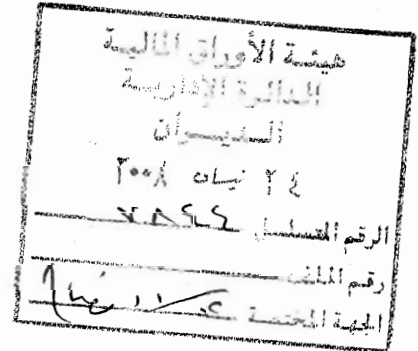 هيئة الأوراق المالية
الدائرة الإدارية
الديوان
٢٤ نيسان ٢٠٠٨
الرقم المتسلسل ٧٨٤٤
رقم الملف
الجهة المختصة